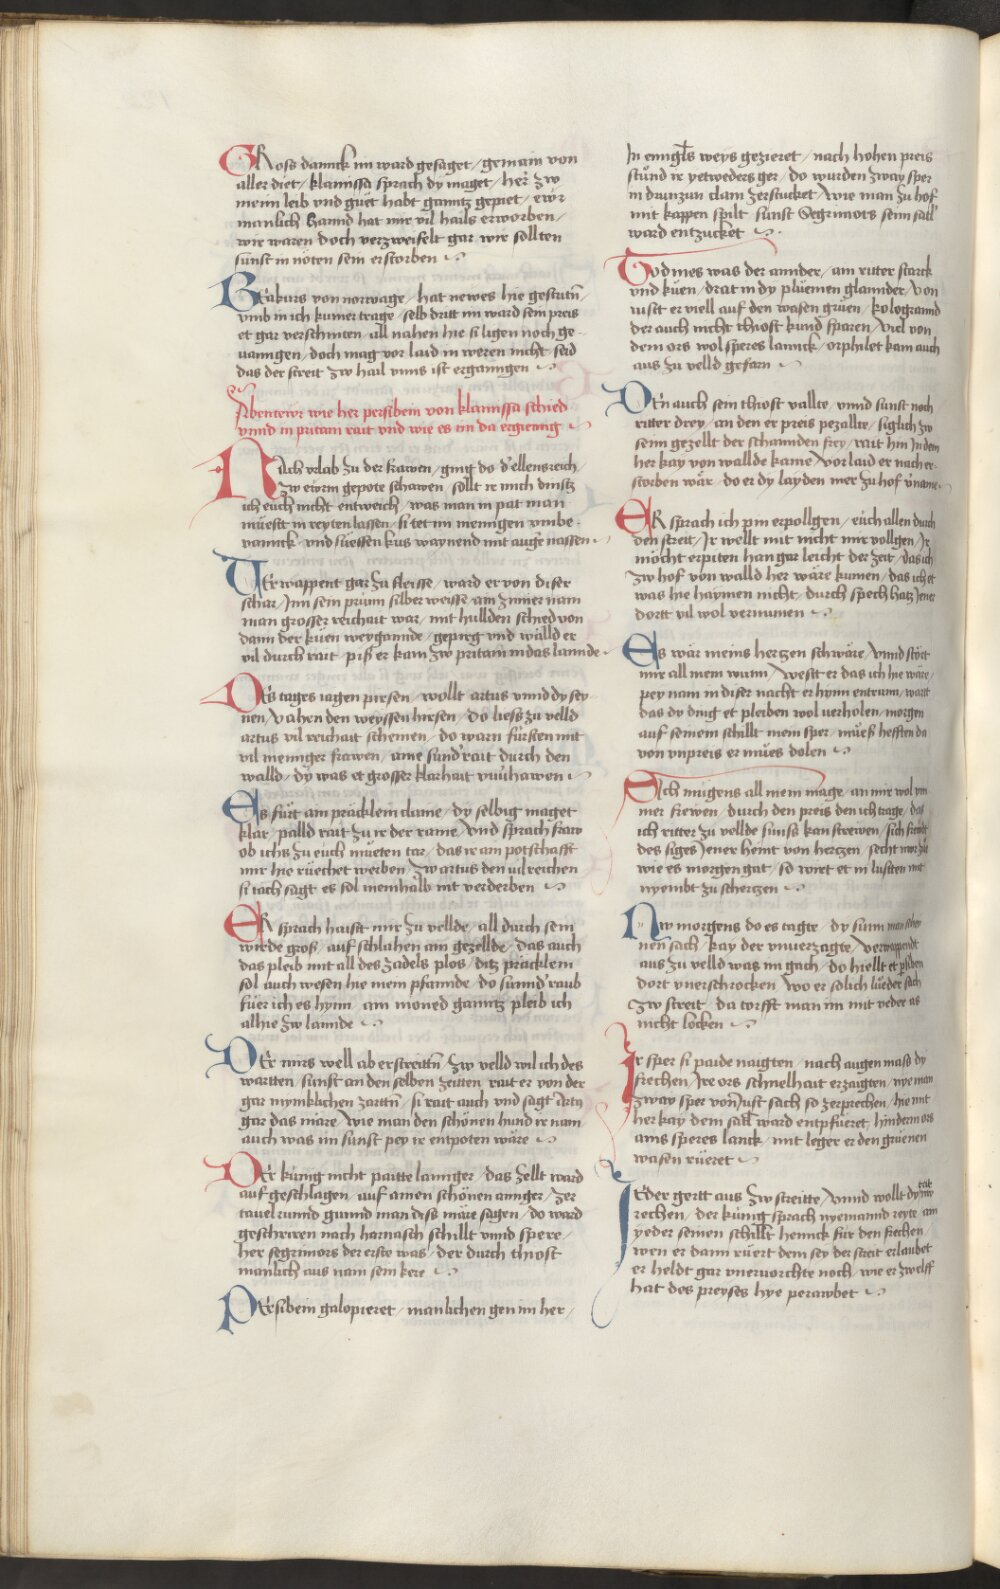 GRoss dannck im ward gesaget / gemain von
aller diet / klarinssa sprach dy maget / her zw
menn leib vnd guet habt ganntz gepiet / ewr
manlich hannd hat mir vil hails erworben /
wir waren doch verzweifelt gar wir sollten
sunst in nöten sein erstorben
von norwage / hat newes hie gestritn /
vmb in ich kumer trage / selb dritt im ward sein preis
et gar verschniten / all nahen hie si ligen noch ge-
uanngen / doch mag vor laid in weren nicht / seid
das der streit zw hail vnns ist erganngen
Abentewr wie her persibein von klarinssa schied
vnnd in pritam rait vnd wie es im da ergieng
NAch vrlab zu der frawen / ging do d' ellensreich /
zw ewrm gepote schawen / sollt ir mich dinstz
ich euch nicht entweich / was man in pat man
muesst in reyten lassen / si tet im mennigen vmbe-
vannck / vnd süessen kus waynend mit augen nassen
Er wappent gar zu fleisse / ward er von diser
schar / Inn sein prünn silber weisse / am zymier nam
man grosser reichait war / mit hullden schied von
dann der küen weygannde / gepirg vnd walld er
vil durch rait / piß er kam zw pritani in das lannde
DEs tages iagen pirsen / wollt artus vnnd dy sey-
nen / vahen den weyssen hirsen / do liess zu velld
artus vil reichait scheinen / do warn fürsten mit
vil menniger frawen / aine sund' rait durch den
walld / dy was et grosser klarhait
Es fürt ain präcklein claine / dy selbig maget
klar / palld rait zu ir der raine / vnd sprach fraw
ob ichs zu euch mueten tar / das ir ain potschafft
mir hie ruechet werben / zw artus den vil reichen
si iach sagt es sol meinhalb nit verderben
ER sprach haisst mir zu vellde / all durch sein
wirde groß / auf schlahen ain gezellde / das auch
das pleib mit all des zadels plos / ditz präcklein
sol auch wesen hie mein pfannde / do sunnd' raub
füer ich es hynn / ain moned ganntz pleib ich
alhie zw lannde
DEr mirs well ab erstreittn / zw velld wil ich des
wartten / sunst an den selben zeitten / rait er von der
gar mynniklichen zarttn / si rait auch vnd sagt Artu
gar das märe / wie man den schönen hund ir nam
auch was im sunst pey ir entpoten wäre
DEr künig nicht paitte lannger / das zellt ward
auf geschlagen / auf ainen schönen annger / zer
tauelrunnd gunnd man diss märe sagen / do ward
geschriren nach harnasch schillt vnnd spere /
her segrimors der erste was / der durch thiost
manlich aus nam sein kere
PErsibein galopieret / manlichen gen im her /
In ennglis weys gezieret / nach hohen preis
stund ir yetweders ger / do wurden zway sper
in drunzun clain zerstucket / wie man zu hof
mit kappen spilt / sunst Segrimors seinn satl'
ward entzucket
TOdines was der annder / ain ritter starck
vnd küen / drat in dy pluemen glannder / von
iusst er viell auf den wasen grüen / kologrannd
der auch nicht thiost kund sparen / viel von
dem ors wol speres lannck / orphilet kam auch
aus zu velld gefarn
DEn auch sein thiost vallte / vnnd sunst noch
ritter drey / an den er preis pezallte / siglich zw
seinn gezellt der schannden frey / rait hin / Indem
her kay von wallde kame / vor laid er nach er-
storben wär / do er dy layden mer zu hof vername
ER sprach ich pin erpollgen / euch allen durch
den streit / Ir wellt mit nicht mir vollgen / Ir
möcht erpiten han gar leicht der zeit / das ich
zw hof von walld her wäre kumen / das ich et
was hie haymen nicht / durch spech hatz Jener
dortt vil wol vernumen
ES war meins hertzen schwäre / vnnd stört
mir all mein wunn / wesst er das ich hie wäre
pey nam in diser nacht er hynn entrunn / wärt
das dy ding et pleiben wol verholen / morgen
auf seinem schillt mein sper / müeß hefften da
von vnpreis er müeß dolen
SIch mügens all mein mage / an mir wol ym-
mer frewen / durch den preis den ich trage / das
ich ritter zu vellde sunst kan strewen / sich frewt
des siges Jener heint von hertzen / secht mar zu
wie es morgen gat / so wirt et in lusten mit
nyembt zu schertzen
NW morgens do es tagte / dy sunn man schei-
nen sach / kay der vnuerzagte / verwappendt
aus zu velld was im gach / do hiellt et persibein
dort vnerschrocken / wo er solich lueder sach
zw streit / da torfft man im mit veder as
nicht locken
Ir sper si paide naigten / nach augen mass dy
frechen / Ire ors schnelhait erzaigten / nye man
zway sper von Just sach so zerprechen / hie mit
her kay dem satl' ward entpfüeret / hinderm ors
ains speres lanck / mit leger er den grüenen
wasen rüeret
IEder gertt aus zw streitte / vnnd wollt dy
rechen / der künig sprach nyemannd reyte
yeder seinen schillt henck für den frechen /
wen er dann rüert dem sey der streit erlaubet
er heldt gar vneruorchte noch / wie er zwelff
hat des preyses hye perawbet